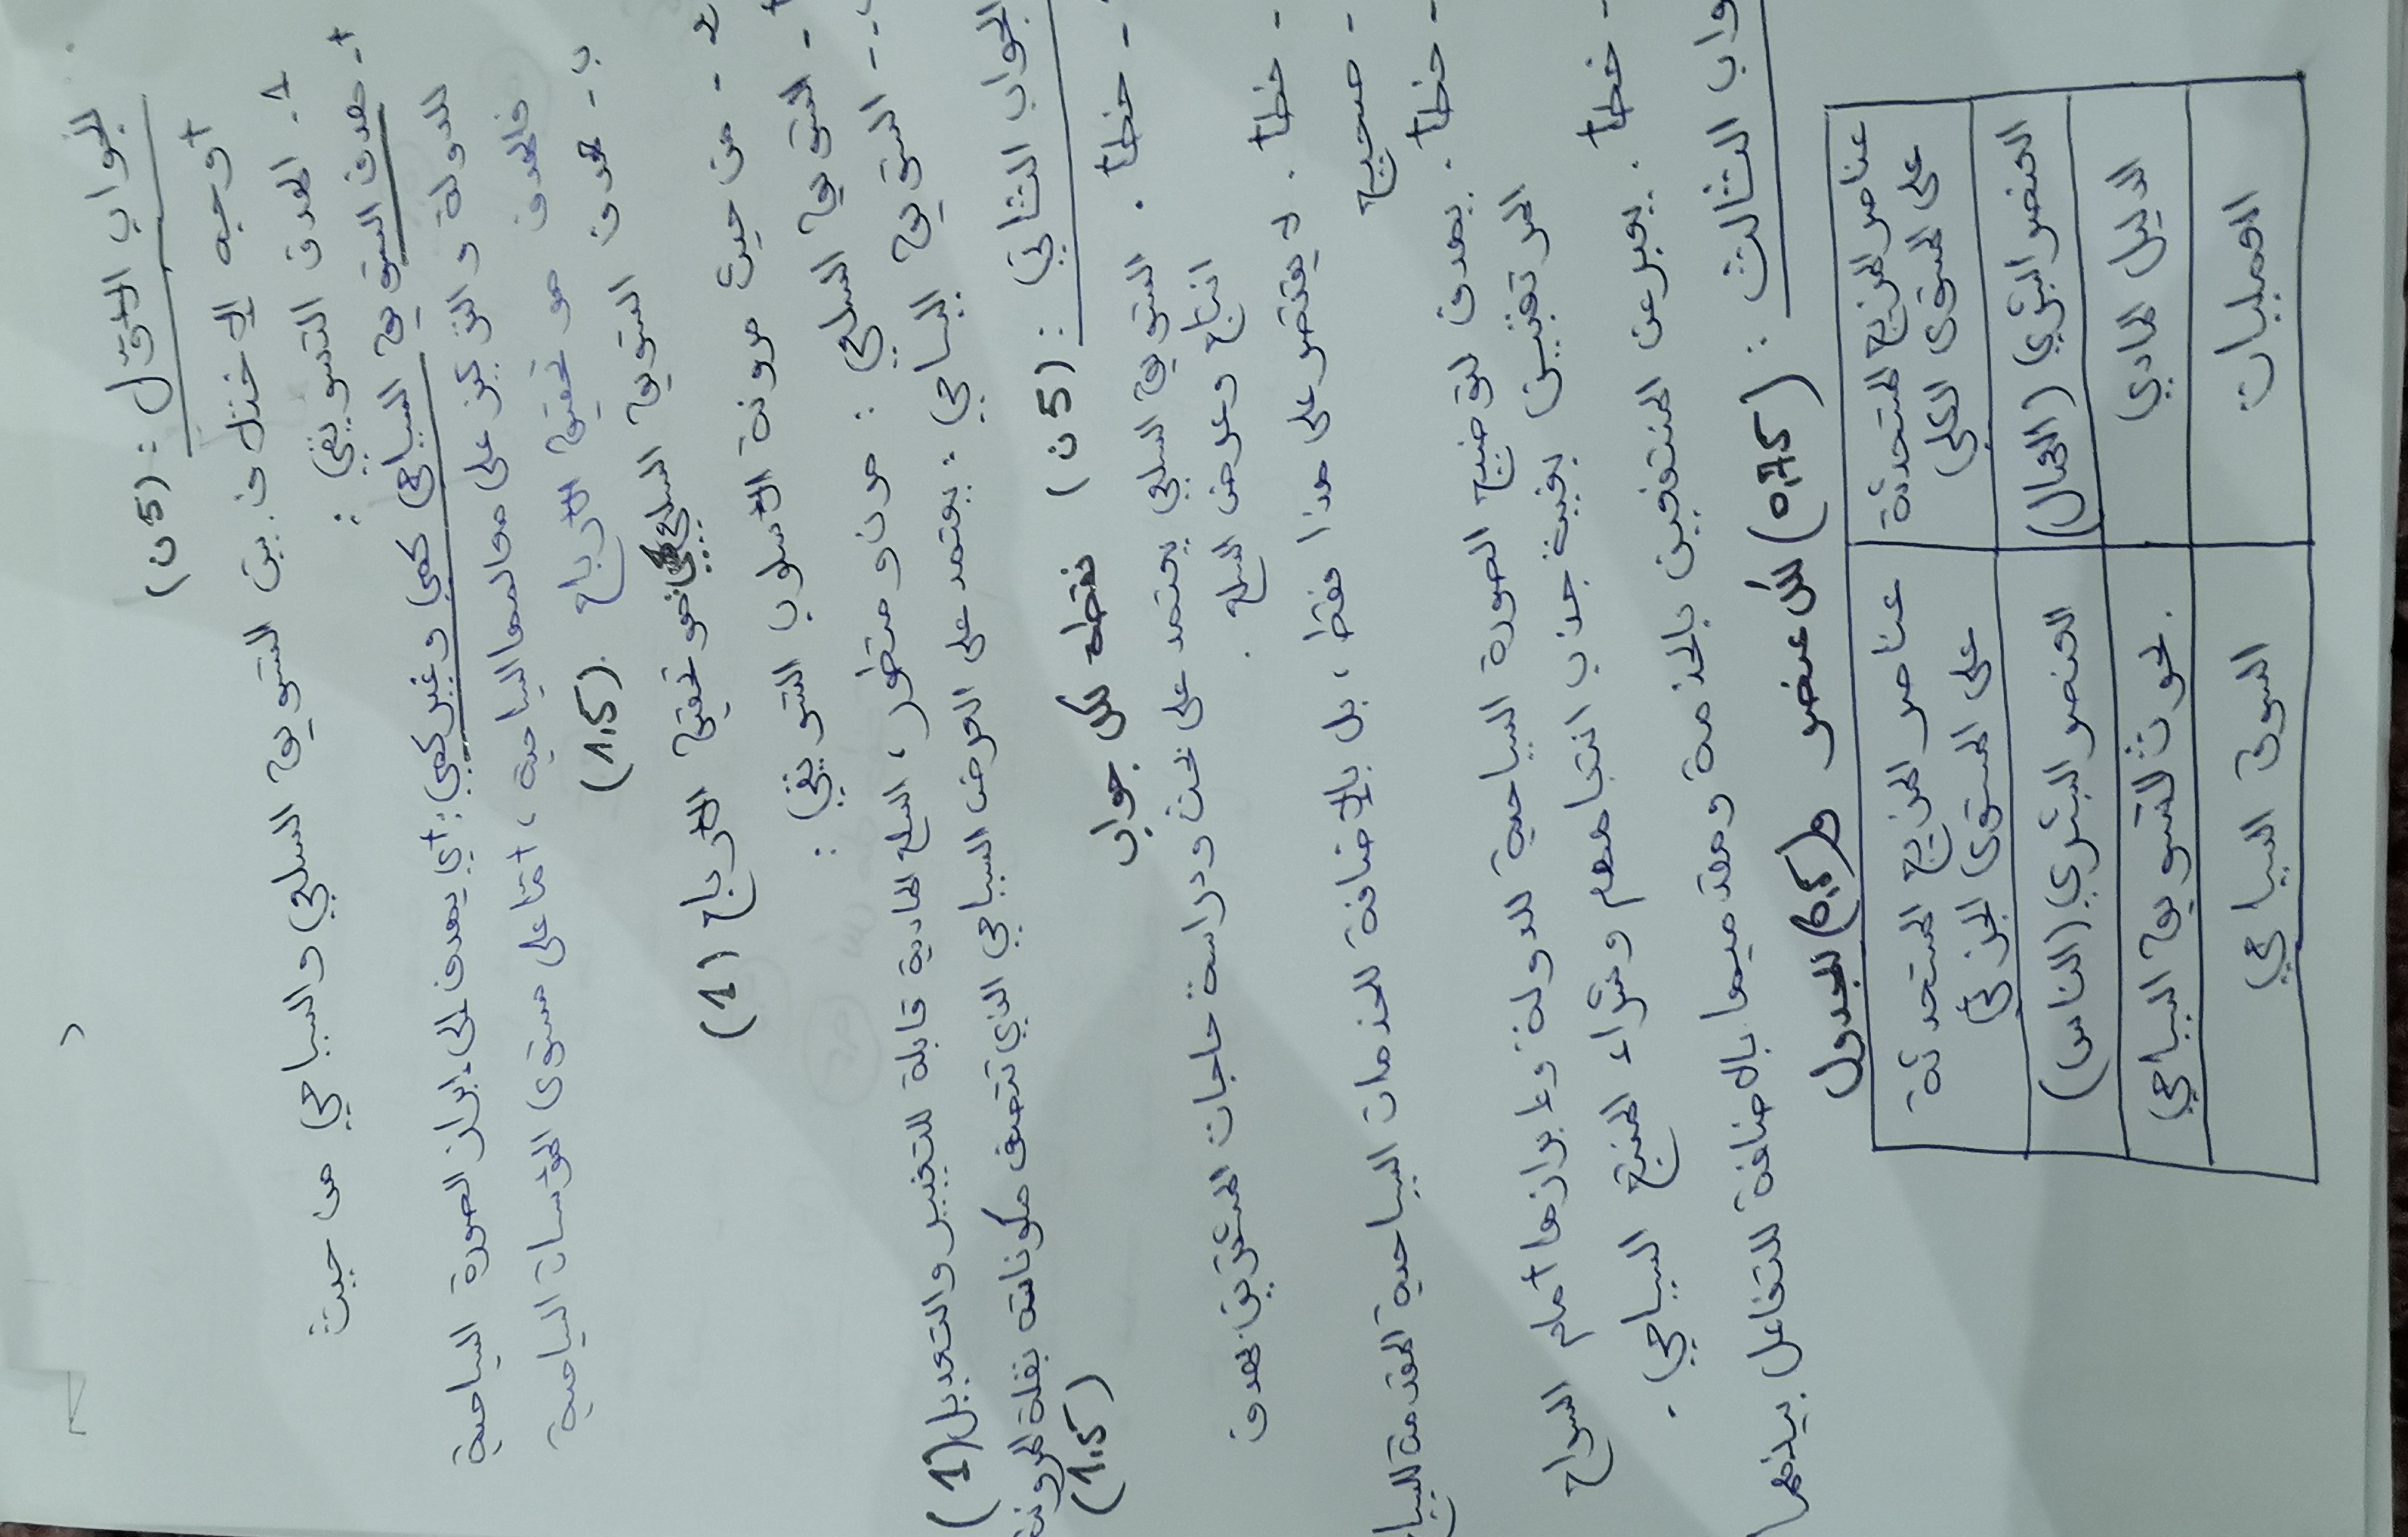 الجواب الأوّل : (5 ن)
أوجه الاختلاف بين التسويق السلعي والسياحي من حيث
1- الهدف التسويقي :
أ- هدف التسويق السياحي كمي وغير كمي : أي يهدف إلى إبراز الصورة السياحية
للدولة والتركيز على معالمها السياحية ، أمّا على مستوى المؤسسات السياحية
فالهدف هو تحقيق الأرباح . (1.5)
ب- هدف التسويق السلعي هو تحقيق الأرباح (1)
2- من حيث مرونة الأسلوب التسويقي :
أ- التسويق السلعي : مرن ومتطور ، السلع المادية قابلة للتغيير والتعديل (1)
ب- التسويق السياحي : يعتمد على العرض السياحي الذي تتصف مكوناته بقلة المرونة
(1.5)
الجواب الثاني : (5 ن) نقطة لكل جواب
- خطأ . التسويق السلعي يعتمد على بحث ودراسة حاجات المشترين بهدف
انتاج وعرض السلع .
- خطأ . لا يقتصر على هذا فقط ، بل بالإضافة للخدمات السياحية المقدمة
- صحيح
- خطأ . يهدف لتوضيح الصورة السياحية للدولة وإبرازها أمام السواح
المرتقبين بغية جذب انتباههم وشراء المنتج السياحي .
- خطأ . يعبر عن المنتفعين بالخدمة ومقدميها بالاضافة للتفاعل بينهما
الثالث : (0,75) لكل عنصر و(0,5) للجدول
عناصر المزيج المستحدثة على المستوى الكلي | عناصر المزيج المستحدثة على المستوى الجزئي
العنصر البشري (العمال) | العنصر البشري (الناس)
الدليل المادي | بحوث التسويق السياحي
العمليات | السوق السياحي